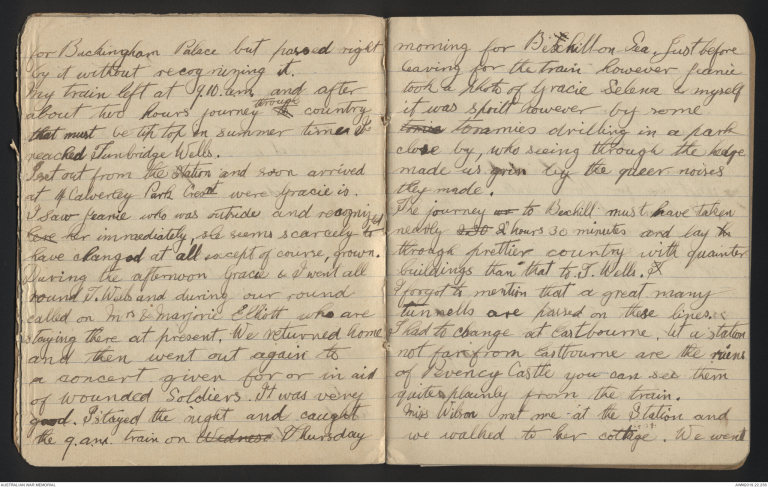 for Buckingham Palace but passed right
by it without recognizing it.
My train left at 9.10. a.m. and after
about two hours journey through country
that must be tip top in summer time I
reached Tunbridge Wells.
I set out from the Station and soon arrived
at 4 Calverley Park Cresnt were Gracie is.
I saw Jeanie who was outside and recognized
her immediately, she seems scarcely to
have changed at all except of course, grown.
During the afternoon Gracie & I went all
round T. Wells and during our round
called on Mrs & Marjorie Elliott who are
staying there at present. We returned home
and then went out again to
a concert given for or in aid
of wounded Soldiers. It was very
good. I stayed the night and caught
the 9. am. train on Wednesd Thursday
morning for Bexhill on Sea. Just before
leaving for the train however Jeanie
took a photo of Gracie Selena & myself
it was spoilt however by some
tommies drilling in a park
close by, who seeing through the hedge
made us grin by the queer noises
they made.
The journey to Bexhill must have taken
nearly 2.30 2 hours 30 minutes and lay
through prettier country with quainter
buildings than that to T. Wells.
I forgot to mention that a great many
tunnells are passed on these lines.
I had to change at Eastbourne. At a station
not far from Eastbourne are the ruins
of Pevency Castle you can see them
quite plainly from the train.
Miss Wilson met me at the Station and
we walked to her cottage. We went
AUSTRALIAN WAR MEMORIAL